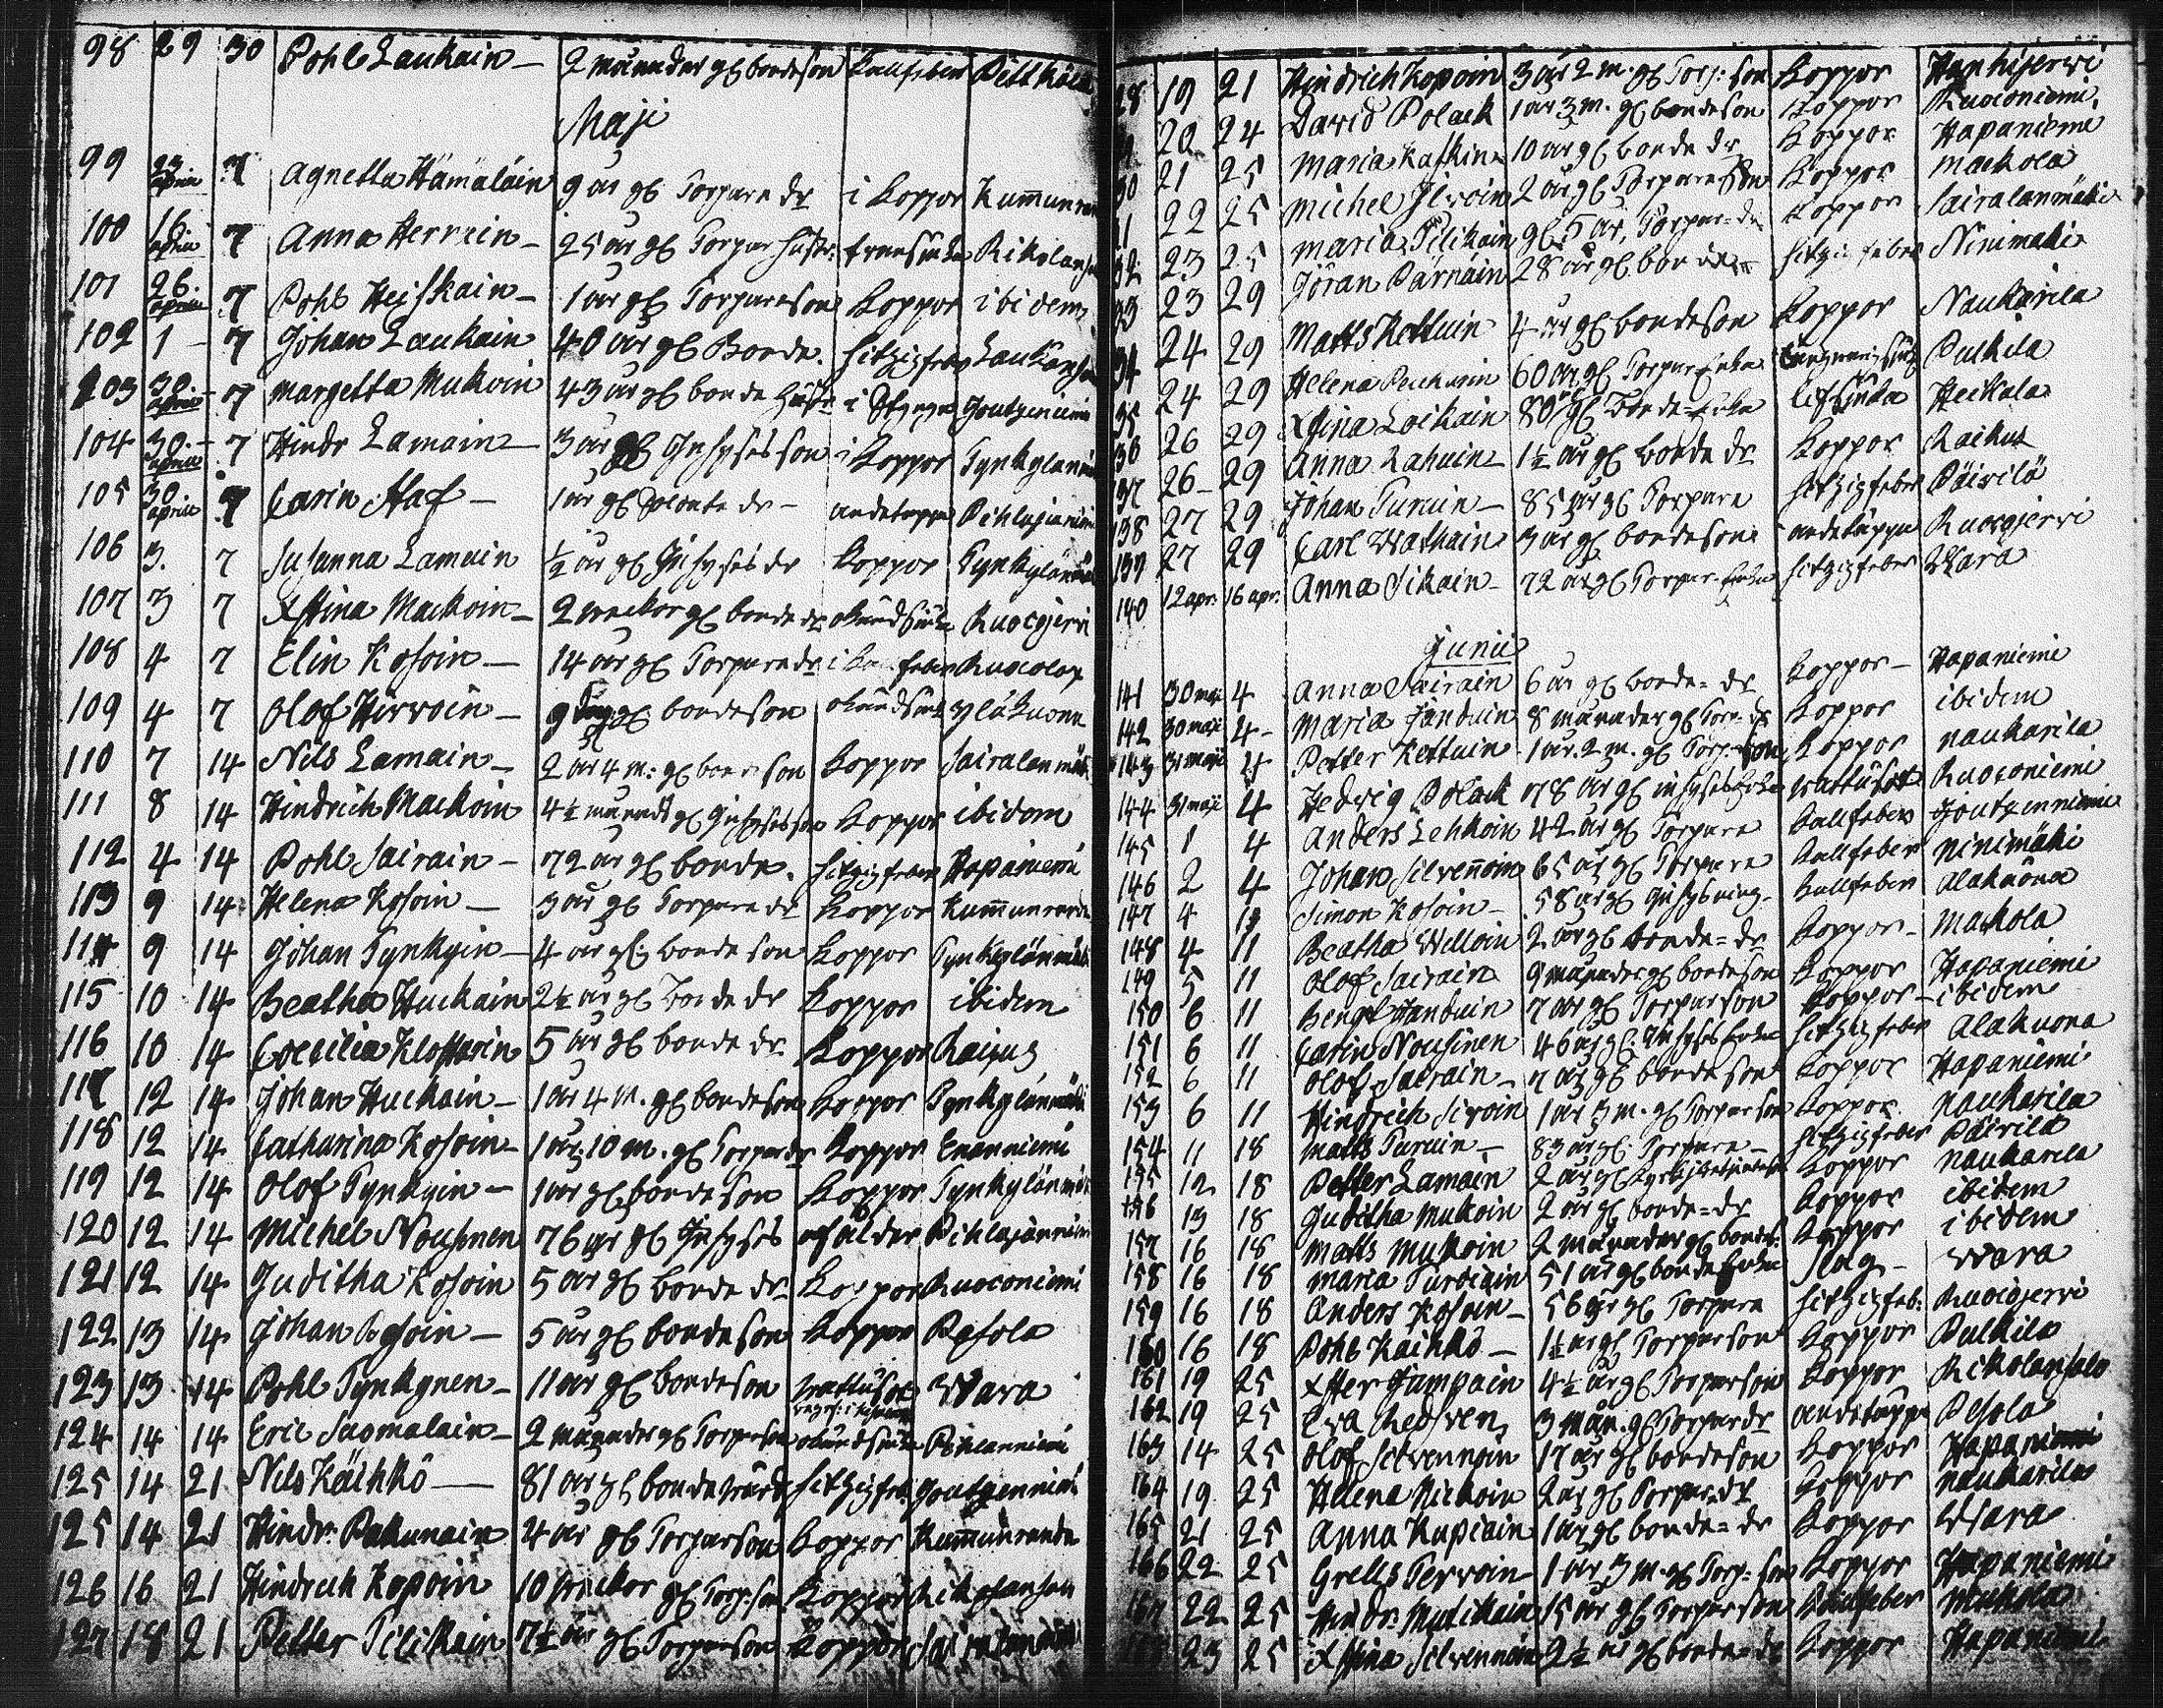 98 29 30 Pohl Laukain – 2 månader gl bondeson kallfeber Pitkälä
Maji
99 23 aprill 7 Agnetta Hämäläin 9 år gl Torpare dr i koppor Kummun
100 16 aprill 7 Anna Herrain – 25 år gl Torpar hustr:
101 26. aprill 7 Pohl Heiskain – 1 år gl Torpareson koppor ibidem
102 1 – 7 Johan Laukain 40 år gl Bonde. hitzigfeber Laukan
103 30. aprill 7 Margetta Mukoin 43 år gl bonde hustr i Joutzeniemi
104 30. – aprill 7 Hindr Lamain – 3 år gl Inhyses son i koppor Tynkylän
105 30. aprill 7 Carin Haf – 1 år gl dr – andetäppa Pihlajaniemi
106 3. 7 Susanna Lamain ½ år gl Inhyses dr koppor Tynkylän
107 3 7 Xstina Mackoin – 2 weckor gl bonde dr okändsiuk Ruocojervi
108 4 7 Elin Kosoin – 14 år gl Torpare dr i feber Ruocolax
109 4 7 Olof Hirvoin – 9 dag gl bondeson okändsiuk Yläkuona
110 7 14 Nils Lamain – 2 år 4 m: gl bondeson koppor Sairalanmäki
111 8 14 Hindrich Mackoin 4½ månads gl Inhyses son koppor ibidem
112 4 14 Pohl Sairain – 72 år gl bonde. hitzigfeber Hapaniemi
113 9 14 Helena Kosoin – 3 år gl Torpare dr koppor Kummunranda
114 9 14 Johan Tynkyin – 4 år gl: bonde son koppor Tynkylänmäki
115 10 14 Beatha Huckain 2½ år gl Bonde dr koppor ibidem
116 10 14 Coecilia Klostarin 5 år gl bonde dr koppor Raikus
117 12 14 Johan Huckain – 1 år 4 m. gl bondeson koppor Tynkylänmäki
118 12 14 Catharina Kosoin – 1 år 10 m. gl Torpar dr koppor Enanniemi
119 12 14 Olof Tynkyin – 1 år gl bondeson koppor Tynkylänmäki
120 12 14 Michel Nousinen 76 år gl Inhyses af ålder Pihlajaniemi
121 12 14 Juditha Kosoin 5 år gl bonde dr koppor Ruoconiemi
122 13 14 Johan Posoin – 5 år gl bondeson koppor Pesola
123 13 14 Pohl Tynkynen – 11 år gl bondeson wattusot Wara
124 14 14 Eric Suomalain – 2 månader gl Torpareson okändsiuk Pihlanniemi
125 14 21 Nils Käihkö — 81 år gl bonde hitzigfeb: Joutzenniemi
125 14 21 Hindr: Pakunain 4 år gl Torparson koppor Kummunranda
126 16 21 Hindrich Kopoin 10 weckor gl Torp: son koppor Rikolansalo
127 18 21 Petter Tilikain 7½ år gl Torparson koppor Sairalanmäki
28 19 21 Hindrich Kopoin 3 år 2 m. gl Torp: son koppor Hanhijerwi
20 24 David Polack 1 år 3 m. gl bondeson koppor Ruoconiemi
30 21 25 Maria Kaskin 10 år gl bonde dr koppor Hapaniemi
31 22 25 Michel Ilwoin 2 år gl Torpareson koppor Mackola
32 23 25 Maria Tilikain gl 5 år, Torpar= dr koppor Sairalanmäki
33 23 29 Jöran Pärnäin 28 år gl bonde hitzigfeber Ninimäki
34 24 29 Matts Kettuin 4 år gl bondeson koppor Naukarila
35 24 29 Helena Peuckurin 60 år gl Torpar Enka Pulkila
36 26 29 Xstina Loikain 80 år gl Bonde=Enka lifsiuka Heikala
137 26 29 Anna Rahuin 1½ år gl bonde dr koppor Raikus
138 27 29 Johan Turuin – 85 år gl Torpare hitzigfeber Päivilä
139 27 29 Carl Wathain 3 år gl bondeson andetäppa Ruocojerwi
140 12 apr: 16 apr: Anna Sikain – 72 år gl Torpar-Enka hitzigfeber Wara
Junii
141 30 maji 4 Anna Sairain 6 år gl bonde= dr koppor – Hapaniemi
142 30 maji 4 – Maria Janduin 8 månader gl Torp= dr koppor ibidem
143 31 maji 4 Petter Kettuin 1 år. 2 m. gl Torp: son koppor Naukarila
144 31 maji 4 Hedvig Polack 78 år gl inhyses Enka wattusot Ruoconiemi
145 1 4 Anders Lehkoin 42 år gl Torpare kallfeber Joutzenniemi
146 2 4 Johan Silvennoin 65 år gl Torpare kallfeber Ninimäki
147 4 Simon Kosoin – 58 år gl Inhysning – kallfeber Alakuona
148 4 11 Beatha Willoin 2 år gl bonde= dr koppor – Mackola
149 5 11 Olof Sairain 9 månader gl bondeson koppor Hapaniemi
150 6 11 Bengt Janduin 7 år gl Torparson koppor – ibidem
151 6 11 Carin Nousinen 46 år gl: Inhyses Enka hitzigfeber Alakuona
152 6 11 Olof Sairain – 7 år gl bondeson koppor Hapaniemi
153 6 11 Hindrich Sivoin 1 år 3 m. gl Torparson koppor. Naukarila
154 11 18 Matts Turuin – 83 år gl. Torpare – hitzigfeber Päivilä
155 12 18 Petter Lamain 2 år gl koppor Naukarila
156 13 18 Juditha Mukoin 2 år gl bonde=dr koppor ibidem
157 16 18 Matts Mukoin 2 månader gl bondes: koppor ibidem
158 16 18 Maria Turtiain 51 år gl bonde Enka Slag – Wara
159 16 18 Anders Kosoin – 56 år gl Torpare hitzigfeb: Ruocojerwi
160 16 18 Pohl Kaihkö – 1½ år gl Torparson koppor Pulkila
161 19 25 Xster Jumpain 4½ år gl Torparson koppor Rikolansalo
162 19 25 Eva Redsven 3 mån. gl Torpar dr andetäppa Pesola
163 14 25 Olof Silvennoin 17 år gl bondeson koppor Hapaniemi
164 19 25 Helena Nickoin 2 år gl Torpar dr koppor Naukarila
165 21 25 Anna Kupiain 1 år gl bonde= dr koppor Wara
166 22 25 Grells Tervoin 1 år 3 m. gl Torp= son koppor Hapaniemi
167 22 25 Hindr: Mutikain 15 år gl Torparson kallfeber Mukola
23 25 Xstina Silvennoin 2½ år gl bonde= dr koppor Hapaniemi